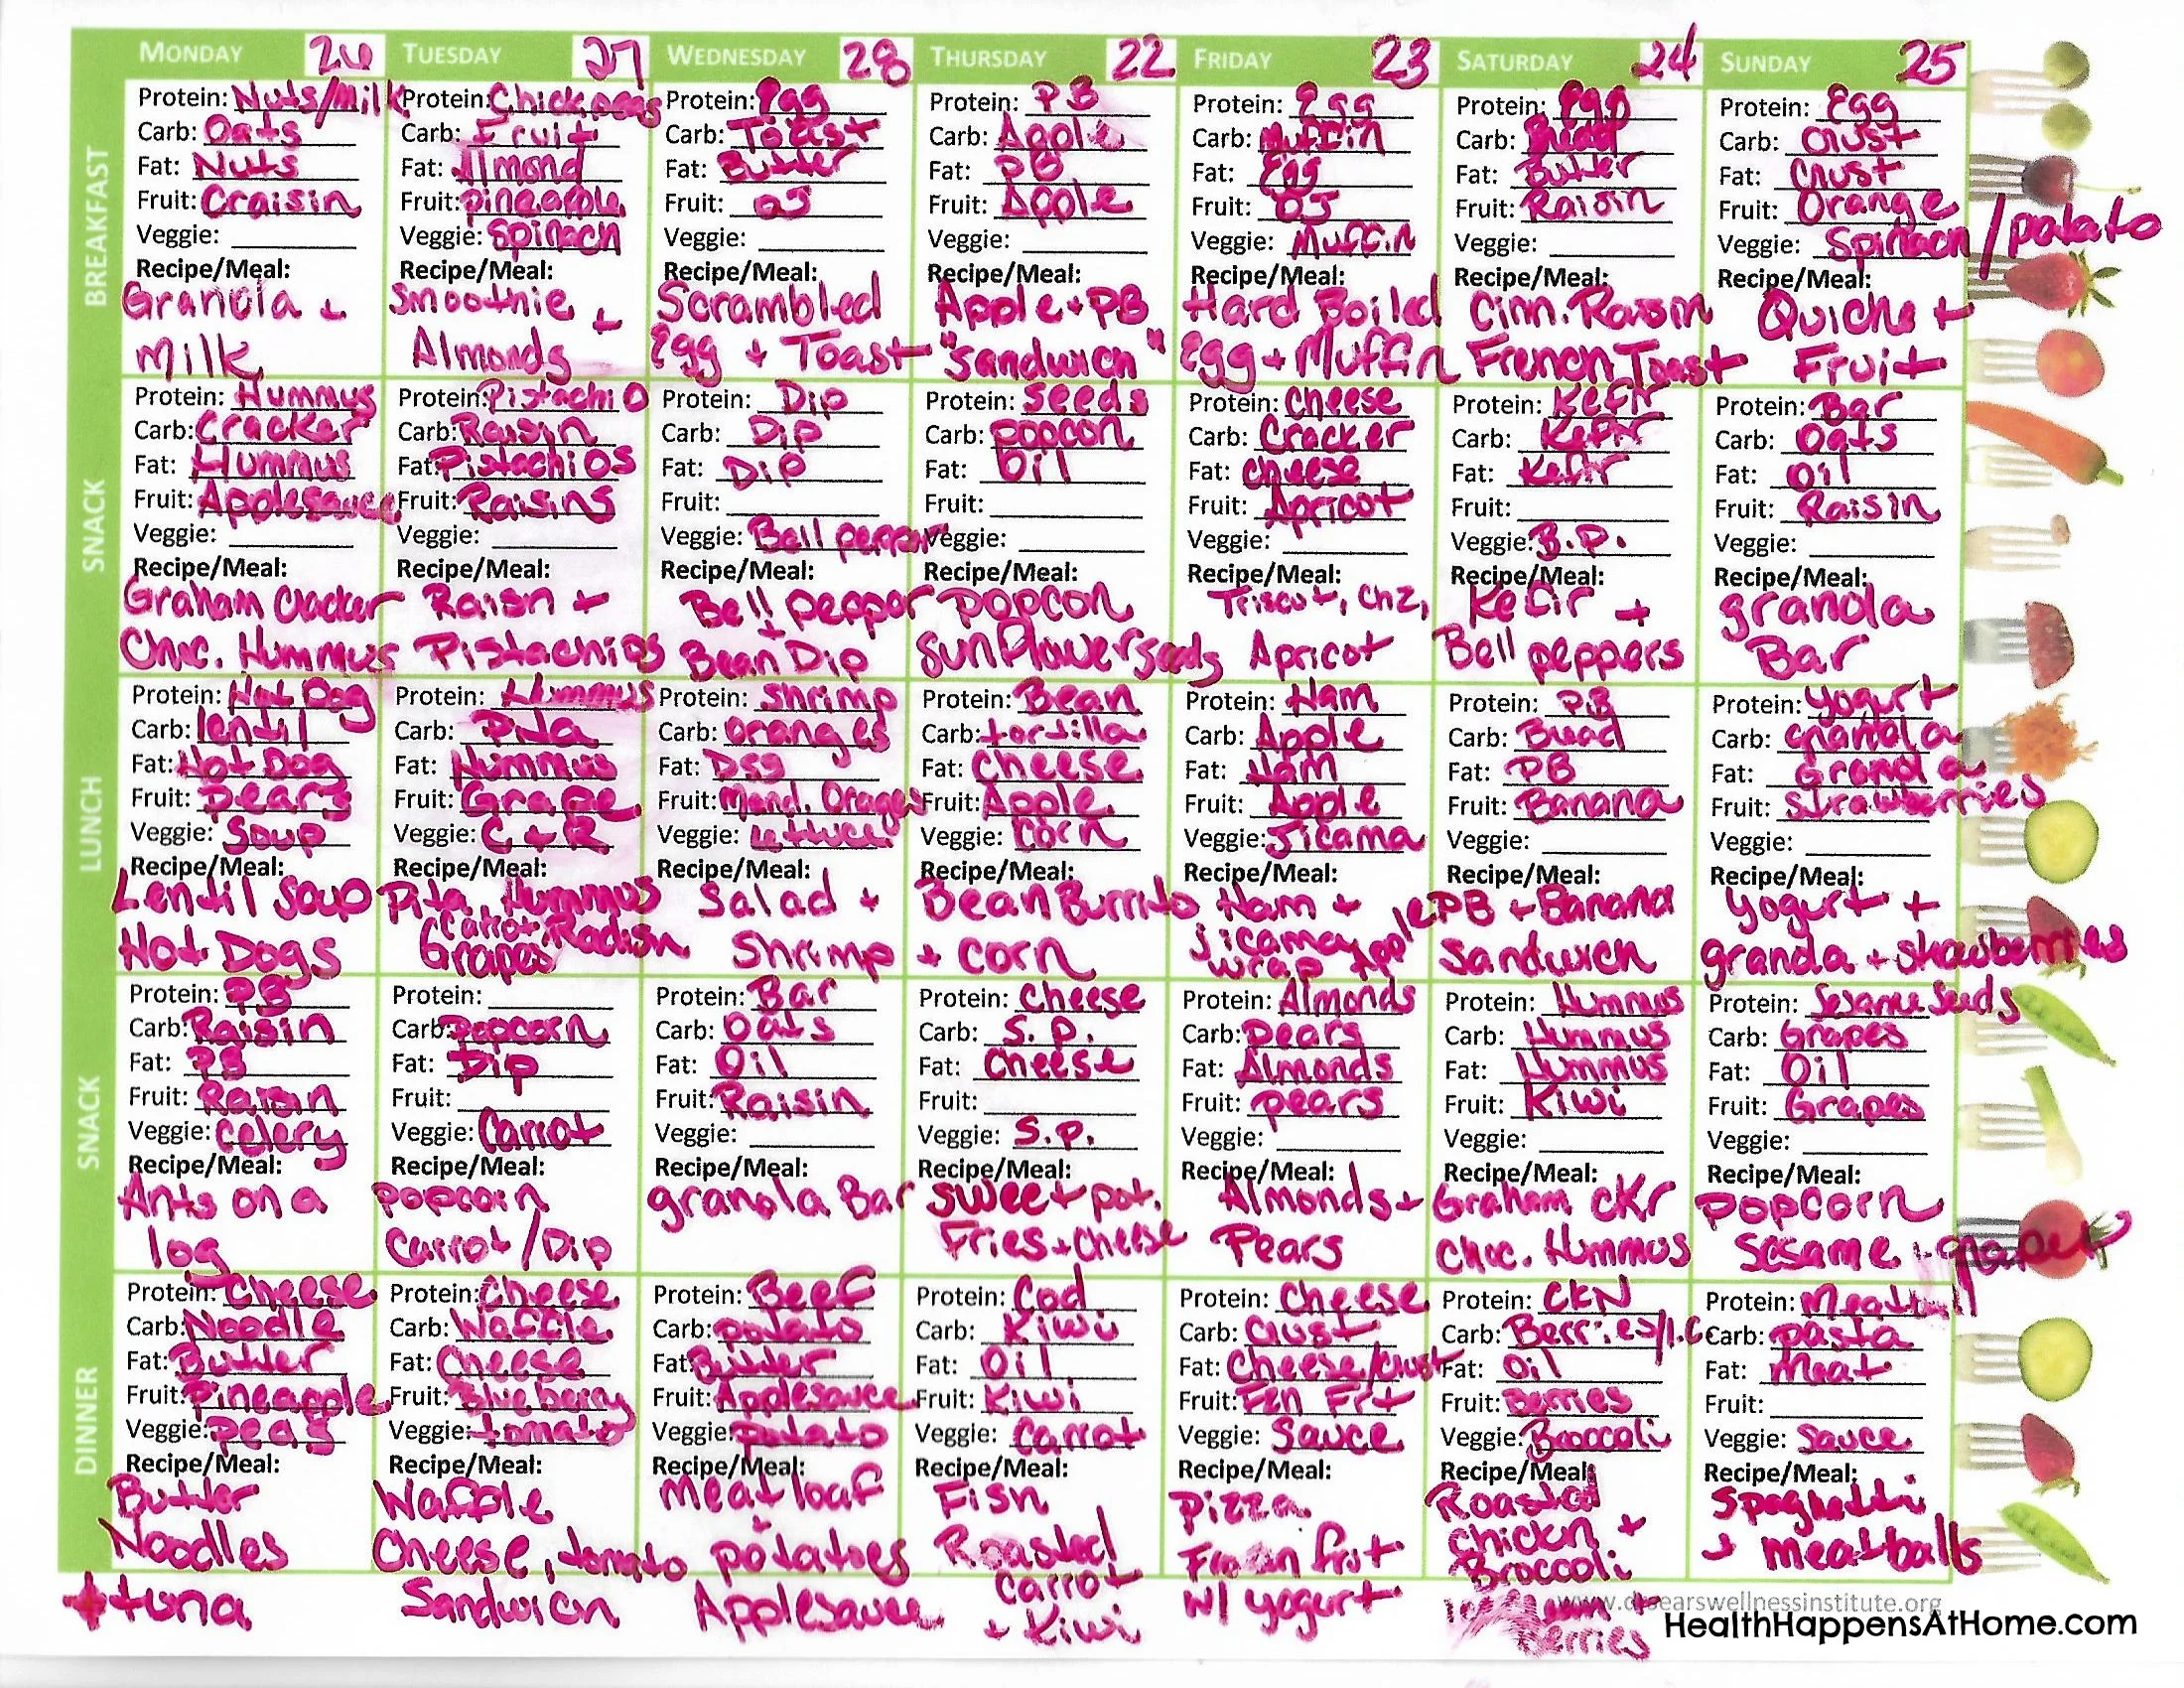 MONDAY 26 TUESDAY 27 WEDNESDAY 28 THURSDAY 22 FRIDAY 23 SATURDAY 24 SUNDAY 25
BREAKFAST
Protein: Nuts/Milk Protein: Chick peas Protein: Egg Protein: PB Protein: Egg Protein: Egg Protein: Egg
Carb: Oats Carb: Fruit Carb: Toast Carb: Apple Carb: Muffin Carb: Bread Carb: Crust
Fat: Nuts Fat: Almond Fat: Butter Fat: PB Fat: Egg Fat: Butter Fat: Crust
Fruit: Craisin Fruit: pineapple Fruit: OJ Fruit: Apple Fruit: OJ Fruit: Raisin Fruit: Orange
Veggie: Veggie: Spinach Veggie: Veggie: Veggie: Muffin Veggie: Veggie: Spinach /potato
Recipe/Meal: Recipe/Meal: Recipe/Meal: Recipe/Meal: Recipe/Meal: Recipe/Meal: Recipe/Meal:
Granola + Smoothie + Scrambled Apple + PB Hard Boiled Cinn. Raisin Quiche +
Milk Almonds Egg + Toast "Sandwich" Egg + Muffin French Toast Fruit
SNACK
Protein: Hummus Protein: Pistachio Protein: Dip Protein: Seeds Protein: Cheese Protein: Kefir Protein: Bar
Carb: Cracker Carb: Raisin Carb: Dip Carb: popcon Carb: Cracker Carb: Kefir Carb: Oats
Fat: Hummus Fat: Pistachios Fat: Dip Fat: Oil Fat: Cheese Fat: Kefir Fat: Oil
Fruit: Applesauce Fruit: Raisins Fruit: Fruit: Fruit: Apricot Fruit: Fruit: Raisin
Veggie: Veggie: Veggie: Bell pepper Veggie: Veggie: Veggie: B.P. Veggie:
Recipe/Meal: Recipe/Meal: Recipe/Meal: Recipe/Meal: Recipe/Meal: Recipe/Meal: Recipe/Meal:
Graham Cracker Raisn + Bell pepper popcon Triscut, Chz, Kefir + granola
Choc. Hummus Pistachios + Bean Dip Sunflower seeds Apricot Bell peppers Bar
LUNCH
Protein: Hot Dog Protein: Hummus Protein: Shrimp Protein: Bean Protein: Ham Protein: PB Protein: Yogurt
Carb: lentil Carb: Pita Carb: Oranges Carb: tortilla Carb: Apple Carb: Bread Carb: granola
Fat: Hot Dog Fat: Hummus Fat: Dsg Fat: Cheese Fat: Ham Fat: PB Fat: Granola
Fruit: Pears Fruit: Grape Fruit: Mand. Oranges Fruit: Apple Fruit: Apple Fruit: Banana Fruit: Strawberries
Veggie: Soup Veggie: C + R Veggie: Lettuce Veggie: Corn Veggie: Jicama Veggie: Veggie:
Recipe/Meal: Recipe/Meal: Recipe/Meal: Recipe/Meal: Recipe/Meal: Recipe/Meal: Recipe/Meal:
Lentil Soup Pita, Hummus Salad + Bean Burrito Ham + PB + Banana Yogurt +
Hot Dogs Carrot/Radish Grapes Shrimp + Corn jicama wrap Apple Sandwich granola + strawberries
SNACK
Protein: PB Protein: Protein: Bar Protein: Cheese Protein: Almonds Protein: Hummus Protein: Sesame Seeds
Carb: Raisin Carb: Popcorn Carb: Oats Carb: S.P. Carb: pears Carb: Hummus Carb: Grapes
Fat: PB Fat: Dip Fat: Oil Fat: Cheese Fat: Almonds Fat: Hummus Fat: Oil
Fruit: Raisin Fruit: Fruit: Raisin Fruit: Fruit: pears Fruit: Kiwi Fruit: Grapes
Veggie: Celery Veggie: Carrot Veggie: Veggie: S.P. Veggie: Veggie: Veggie:
Recipe/Meal: Recipe/Meal: Recipe/Meal: Recipe/Meal: Recipe/Meal: Recipe/Meal: Recipe/Meal:
Ants on a popcorn granola Bar Sweet pot. Almonds + Graham CKr popcorn
log Carrot/Dip Fries + Cheese Pears Choc. Hummus Sesame + grapes
DINNER
Protein: Cheese Protein: Cheese Protein: Beef Protein: Cod Protein: Cheese Protein: CKN Protein: Meatball
Carb: Noodle Carb: Waffle Carb: potato Carb: Kiwi Carb: Crust Carb: Berries/I.C Carb: pasta
Fat: Butter Fat: Cheese Fat: Butter Fat: Oil Fat: Cheese/Crust Fat: Oil Fat: Meat
Fruit: Pineapple Fruit: Blueberry Fruit: Applesauce Fruit: Kiwi Fruit: Fzn Frt Fruit: Berries Fruit:
Veggie: peas Veggie: tomato Veggie: potato Veggie: Carrot Veggie: Sauce Veggie: Broccoli Veggie: Sauce
Recipe/Meal: Recipe/Meal: Recipe/Meal: Recipe/Meal: Recipe/Meal: Recipe/Meal: Recipe/Meal:
Butter Waffle Meatloaf Fish Pizza Roasted Spaghetti
Noodles Cheese, tomato + potatoes Roasted Frozen frut chickn + Broccoli + meatballs
+ tuna Sandwich Applesauce Carrot + Kiwi w/ yogurt + Berries
www.drsearswellnessinstitute.org
HealthHappensAtHome.com